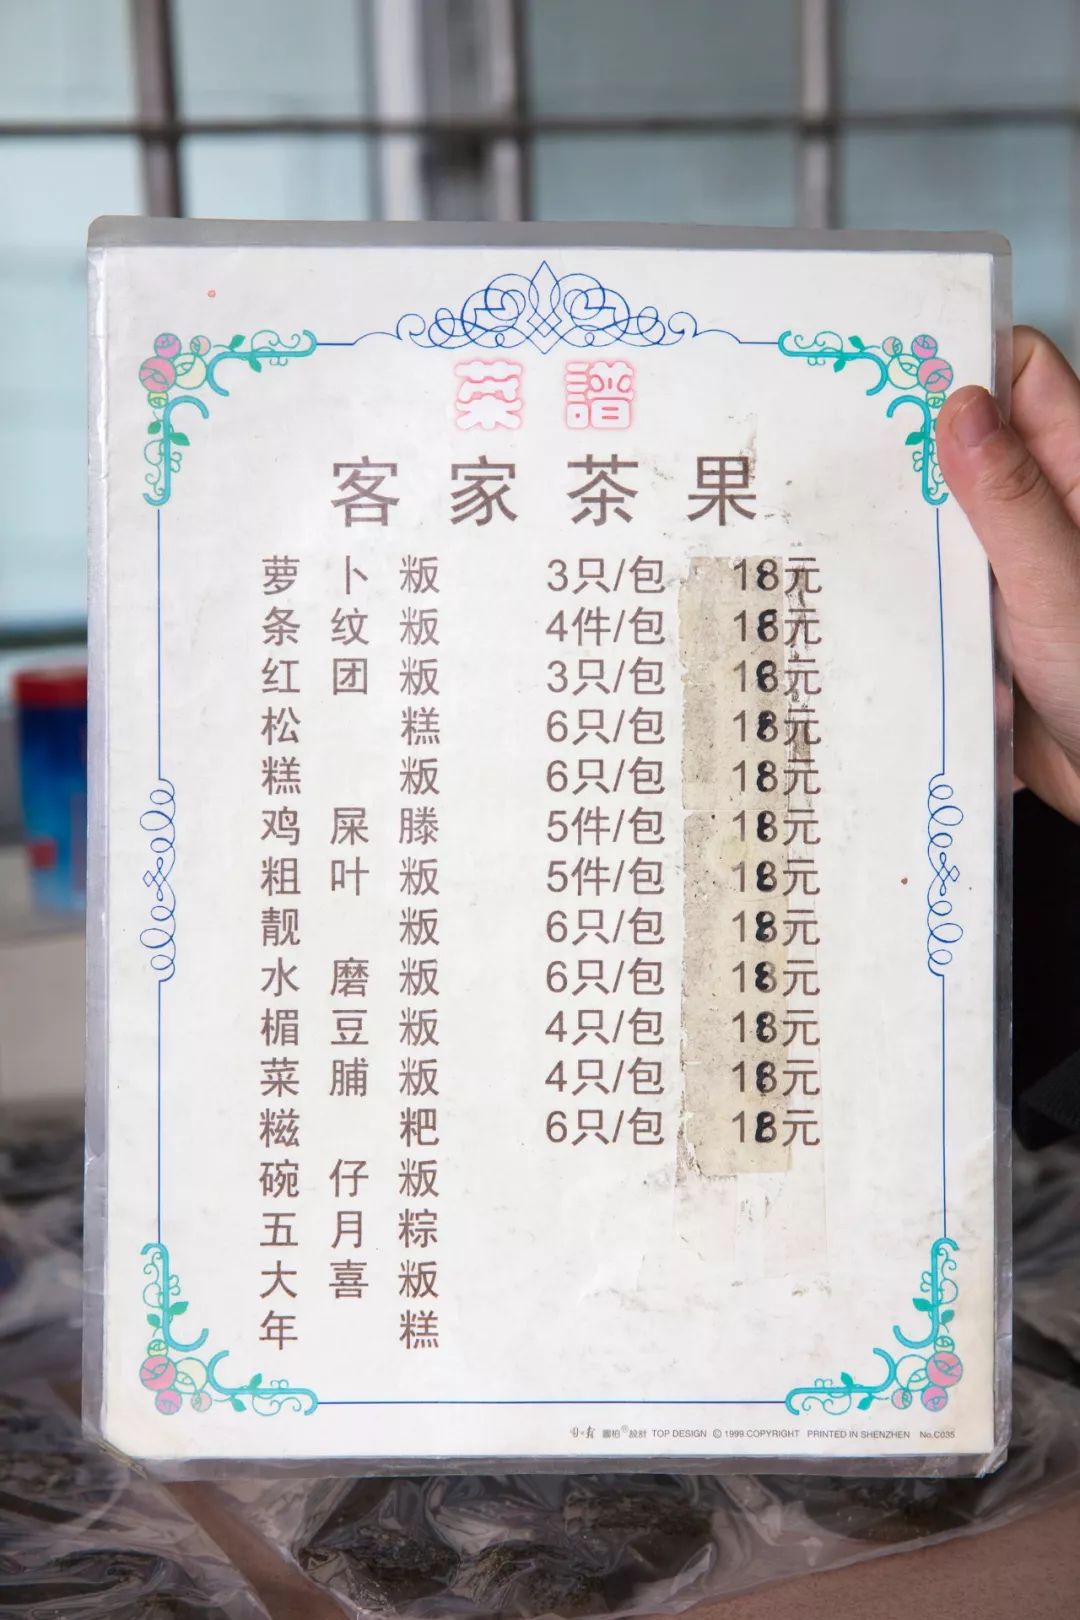 菜 譜
客家茶果
萝卜粄 3只/包 18元
条纹粄 4件/包 18元
红团粄 3只/包 18元
松糕 6只/包 18元
糕粄 6只/包 18元
鸡屎滕 5件/包 18元
粗叶粄 5件/包 18元
靓粄 6只/包 18元
水磨粄 6只/包 18元
楣豆粄 4只/包 18元
菜脯粄 4只/包 18元
糍粑 6只/包 18元
碗仔粄
五月粽
大喜粄
年糕
圖柏®設計 TOP DESIGN © 1999 COPYRIGHT PRINTED IN SHENZHEN No.C035